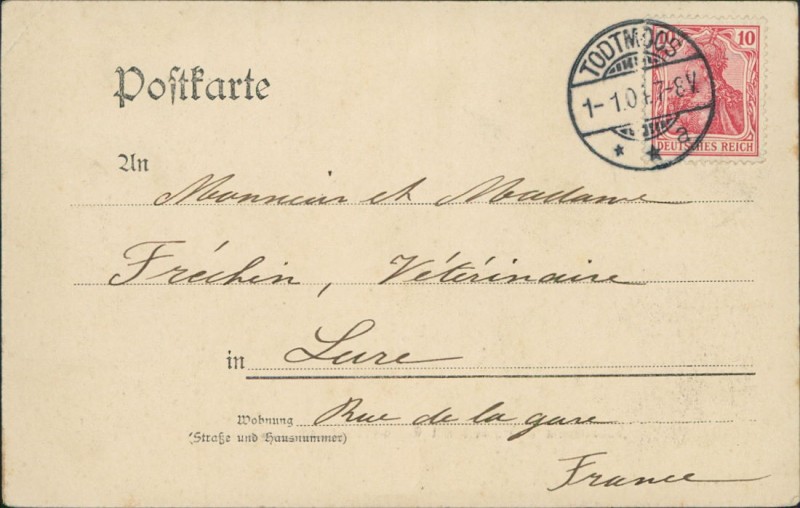 TODTMOOS
1-1.0 7-8V.
a
10
DEUTSCHES REICH
Postkarte
An
Monsieur et Madame
Fréchin, Vétérinaire
in Lure
Wohnung Rue de la gare
(Straße und Hausnummer)
France